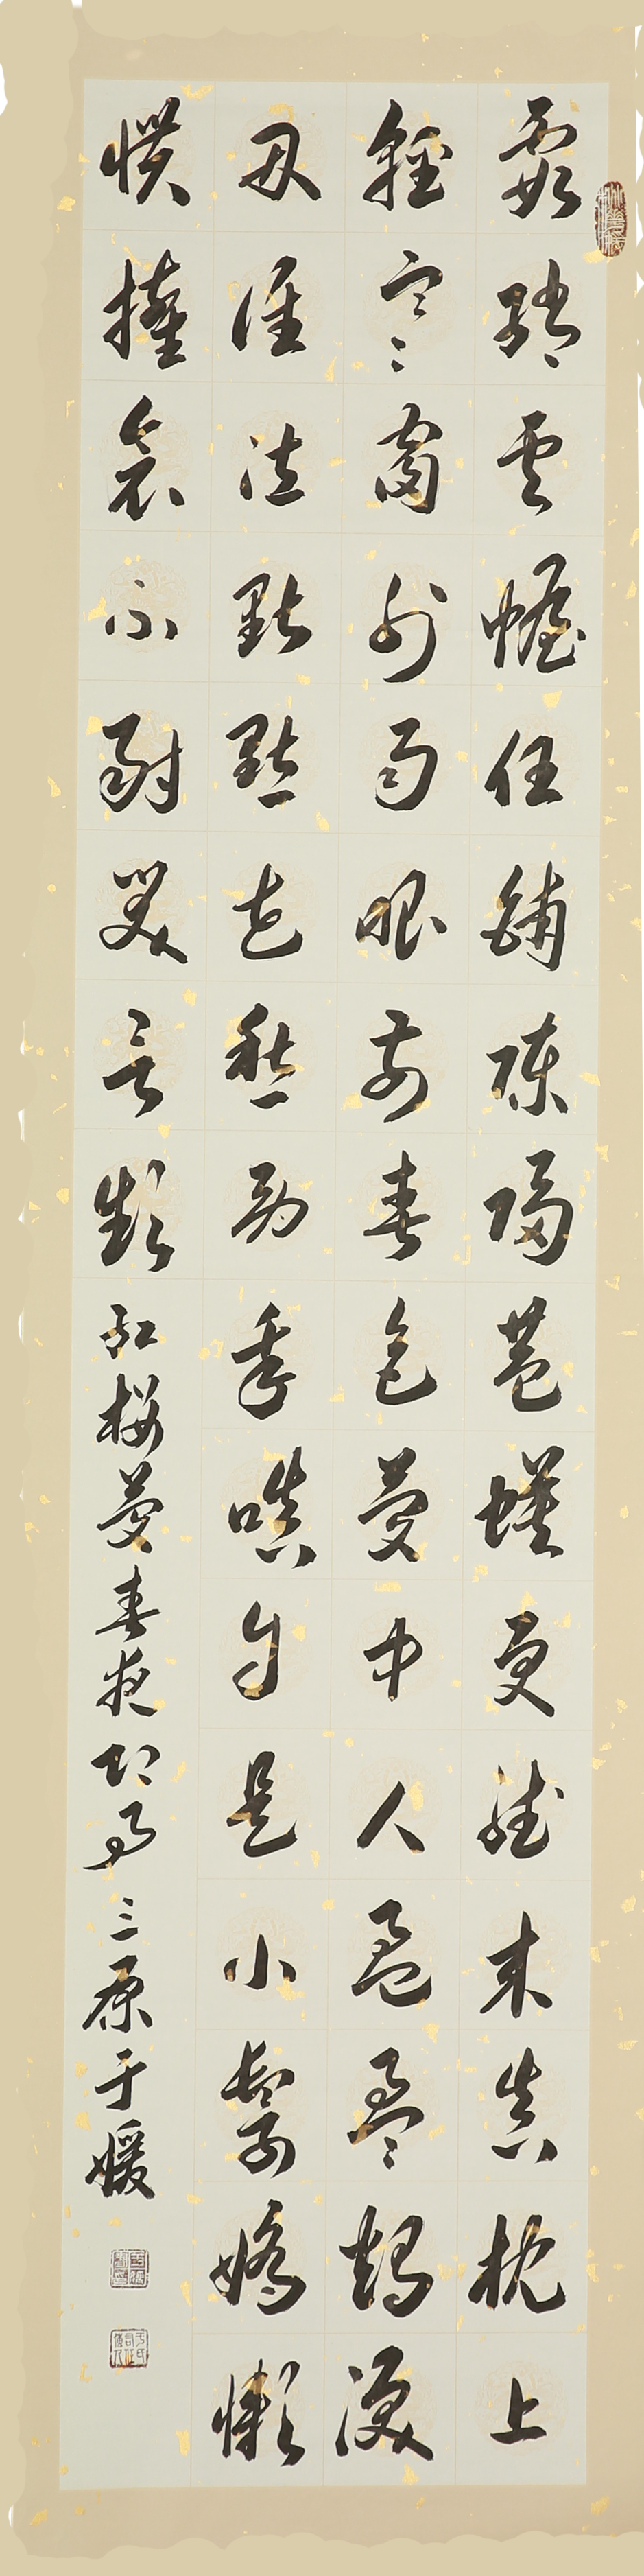 霞綃雲幄任鋪陳隔巷蟆更聽未真枕上
輕寒窗外雨眼前春色夢中人盈盈燭淚
因誰泣點點花愁為我嗔自是小鬟嬌懶
慣擁衾不耐笑言頻紅樓夢春夜即事三原于媛